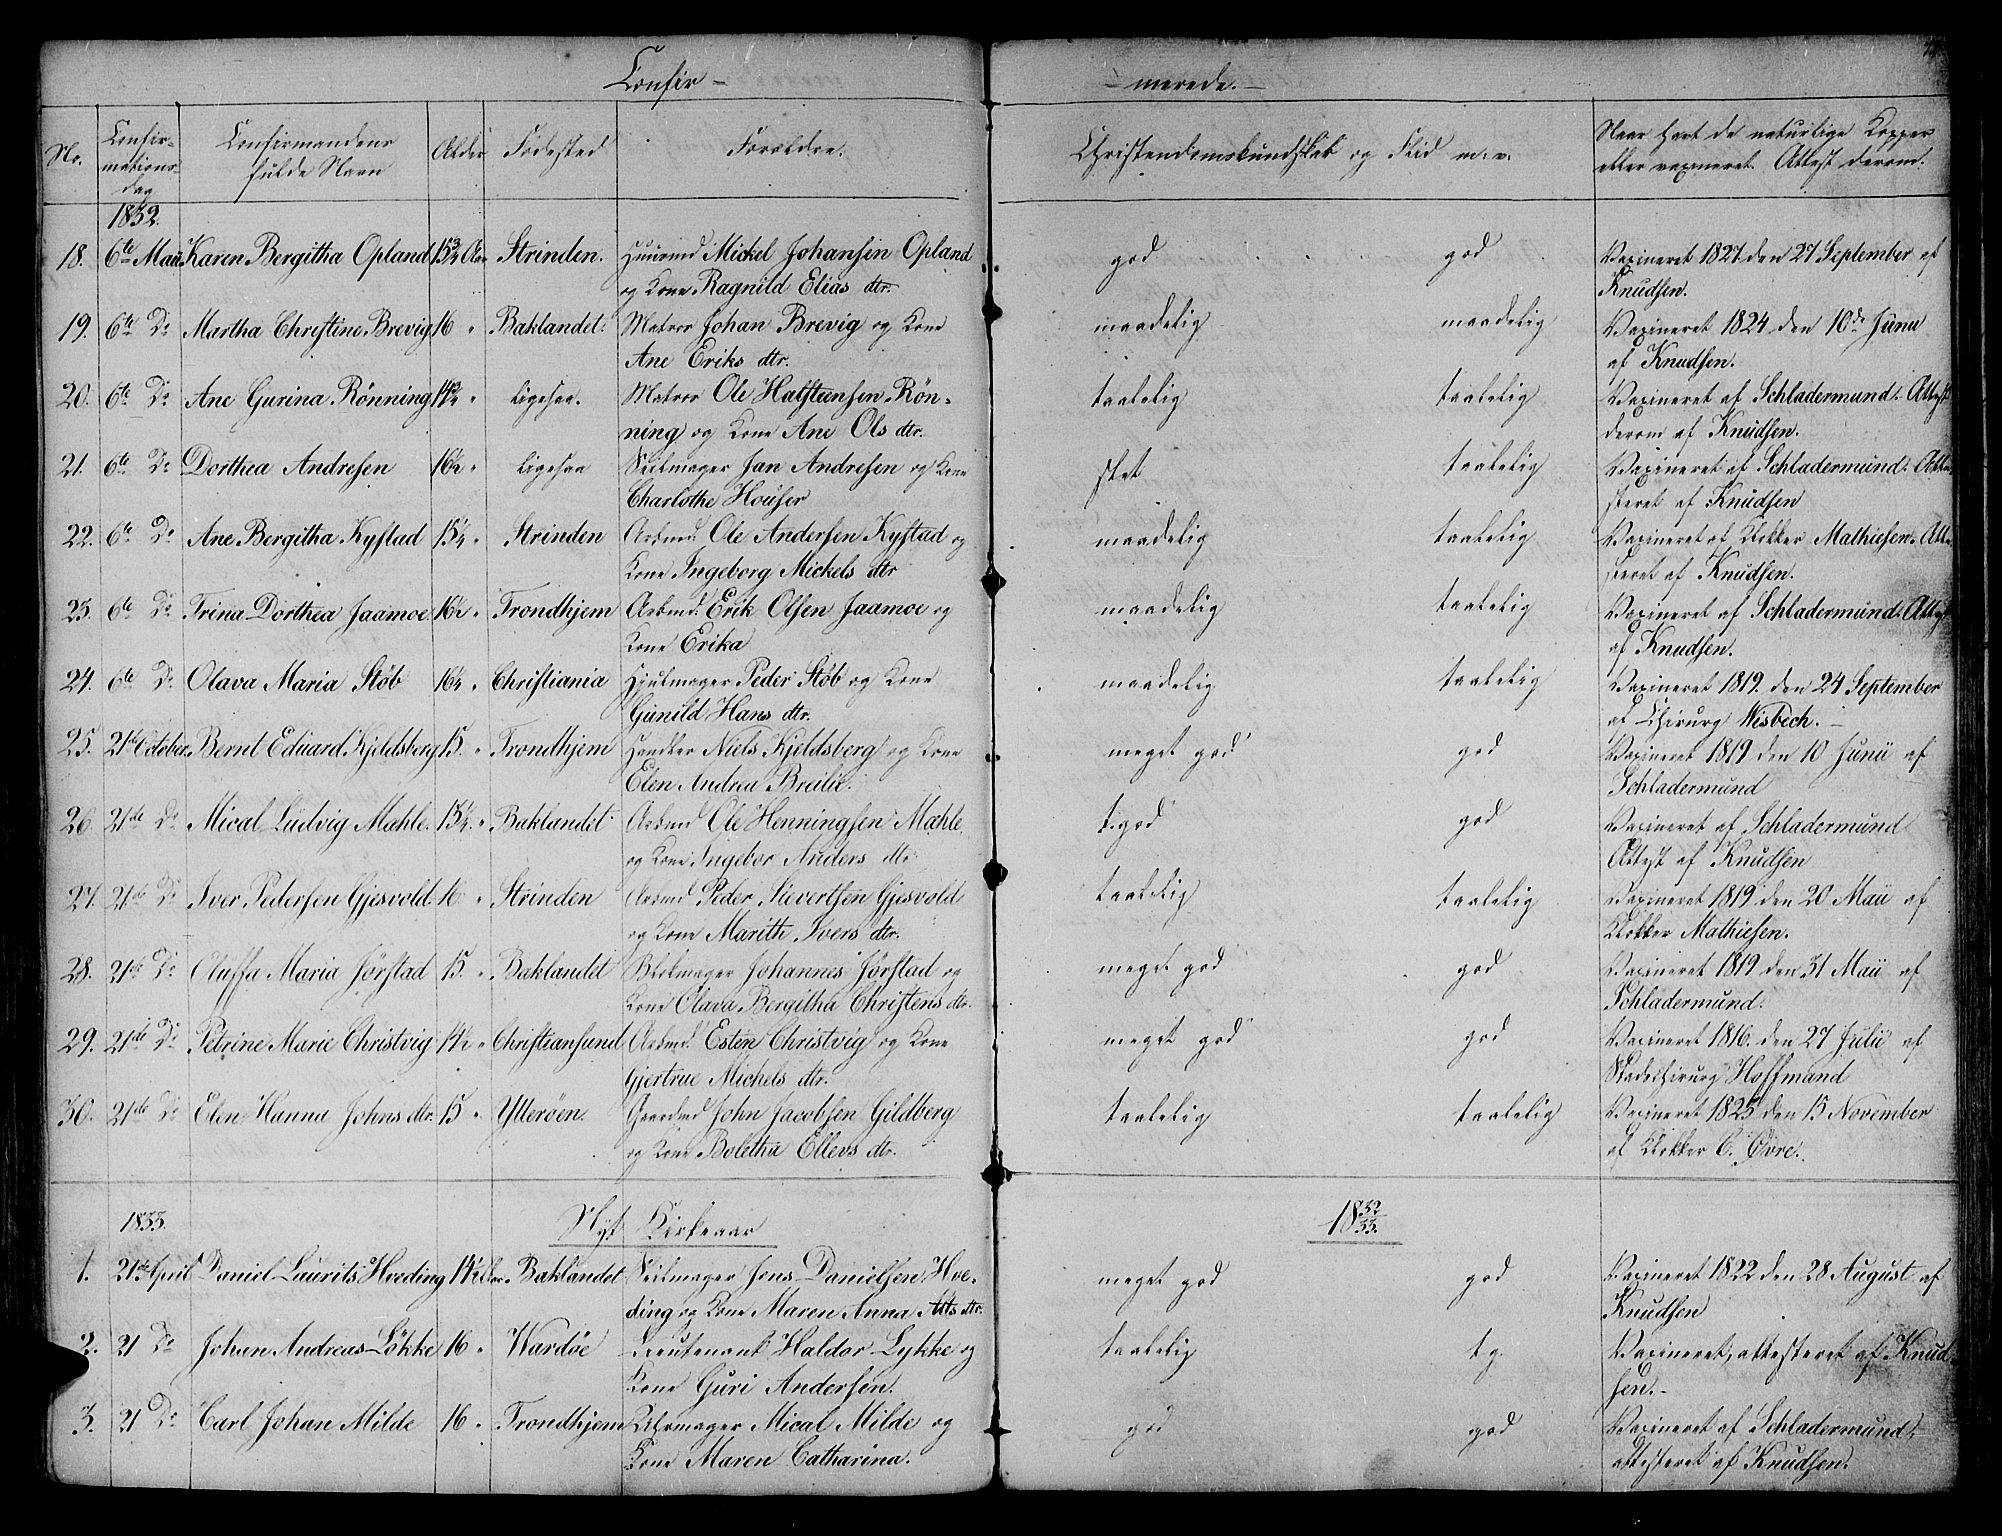 Confir-
merede.
No.
Confir-
mations-
dag
Confirmandens
fulde Navn
Alder
Fødested
Forældre.
Christendomskundskab og Flid m. v.
Naar havt de naturlige Kopper
eller vaxineret. Attest derom.
1832.
18. 6te Maii Karen Bergitha Opland 15¾ Aar Strinden. Huusmd Mickel Johansen Opland god god Vaxineret 1827 den 27 September af
og Kone Ragnild Elias dtr. Knudsen.
19. 6te Do Martha Christine Brevig 16 " Baklandet. Matros Johan Brevig og Kone maadelig maadelig Vaxineret 1824 den 10de Junii
Ane Eriks dtr. af Knudsen.
20. 6te Do Ane Gurina Rönning 14¾ " ligesaa. Matros Ole Halsteinsen Rön- taalelig taalelig Vaxineret af Schladermund. Attest
ning og Kone Ane Ols dtr. derom af Knudsen.
21. 6te Do Dorthea Andresen 16½ " ligesaa Seilmager Jan Andresen og Kone slet taalelig Vaxineret af Schladermund. Atte-
Charlothe Houser steret af Knudsen
22. 6te Do Ane Bergitha Kystad 15¼ " Strinden Arbmd. Ole Andersen Kystad og maadelig taalelig Vaxineret af Klokker Mathiesen. Atte-
Kone Ingeborg Mickels dtr steret af Knudsen.
23. 6te Do Trina Dorthea Jaamoe 16½ " Trondhjem Arbmd. Erik Olsen Jaamoe og maadelig taalelig Vaxineret af Schladermund. Attest
Kone Erika af Knudsen.
24. 6te Do Olava Maria Stöb 16¼ " Christiania Hjulmager Peder Stöb og Kone maadelig taalelig Vaxineret 1819. den 24 September
Gunild Hans dtr. af Chirurg Wisbech. -
25. 21de October Bernt Eduard Kjeldsberg 15. " Trondhjem Handler Niels Kjeldsberg og Kone meget god god Vaxineret 1819 den 10 Junii af
Elen Andrea Breilie. Schladermund
26 21de Do Mical Ludvig Mæhle. 15¼. " Baklandet Arbmd Ole Henningsen Mæhle t. god god Vaxineret af Schladermund
og Kone Ingebor Anders dtr Attest af Knudsen
27. 21de Do Iver Pedersen Gjesvold. 16 " Strinden Arbmd Peder Sievertsen Gjesvold taalelig taalelig Vaxineret 1819 den 20 Maii af
og Kone Marith Ivers dtr. Klokker Mathiesen.
28. 21de Do Oluffa Maria Jørstad 15. " Baklandet Blokmager Johannes Jørstad og meget god god Vaxineret 1819 den 31 Maii af
Kone Olava Bergitha Christens dtr. Schladermund.
29. 21de Do Petrine Marie Christvig 14½ " Christiansund Arbmd. Esten Christvig og Kone meget god god Vaxineret 1816. den 27 Julii af
Gjertrue Michels dtr. Stadschirurg Hoffmand
30. 21de Do Elen Hanna Johns dtr. 15 " Ytterøen. Gaardmd John Jacobsen Gildberg taalelig taalelig Vaxineret 1825 den 15 November
og Kone Boletha Ellevs dtr. af Klokker C. Øvre.
1833. Nyt Kirkeaar 1832/33.
1. 21de April Daniel Laurits Hveding 14½ Aar. Baklandet Seilmager Jens Danielsen Hve- meget god god Vaxineret 1822 den 28 August af
ding og Kone Maren Anna dtr. Knudsen
2. 21 Do Johan Andreas Lökke 16 " Wardøe Lieutenant Haldor Lykke og taalelig tg Vaxineret, attesteret af Knud-
Kone Guri Andersen. sen. -
3. 21 Do Carl Johan Milde 16 " Trondhjem Uhrmager Mical Milde og god god Vaxineret af Schladermund,
Kone Maren Catharina. attesteret af Knudsen.